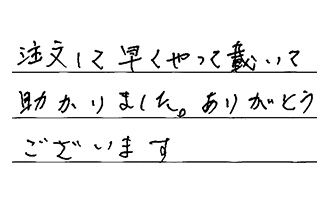 注文して早くやって戴いて
助かりました。ありがとう
ございます